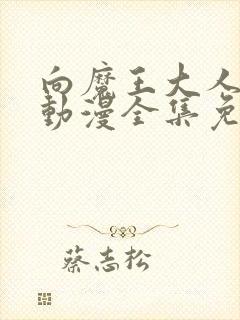 向魔王大人
動漫全集免
蔡志松